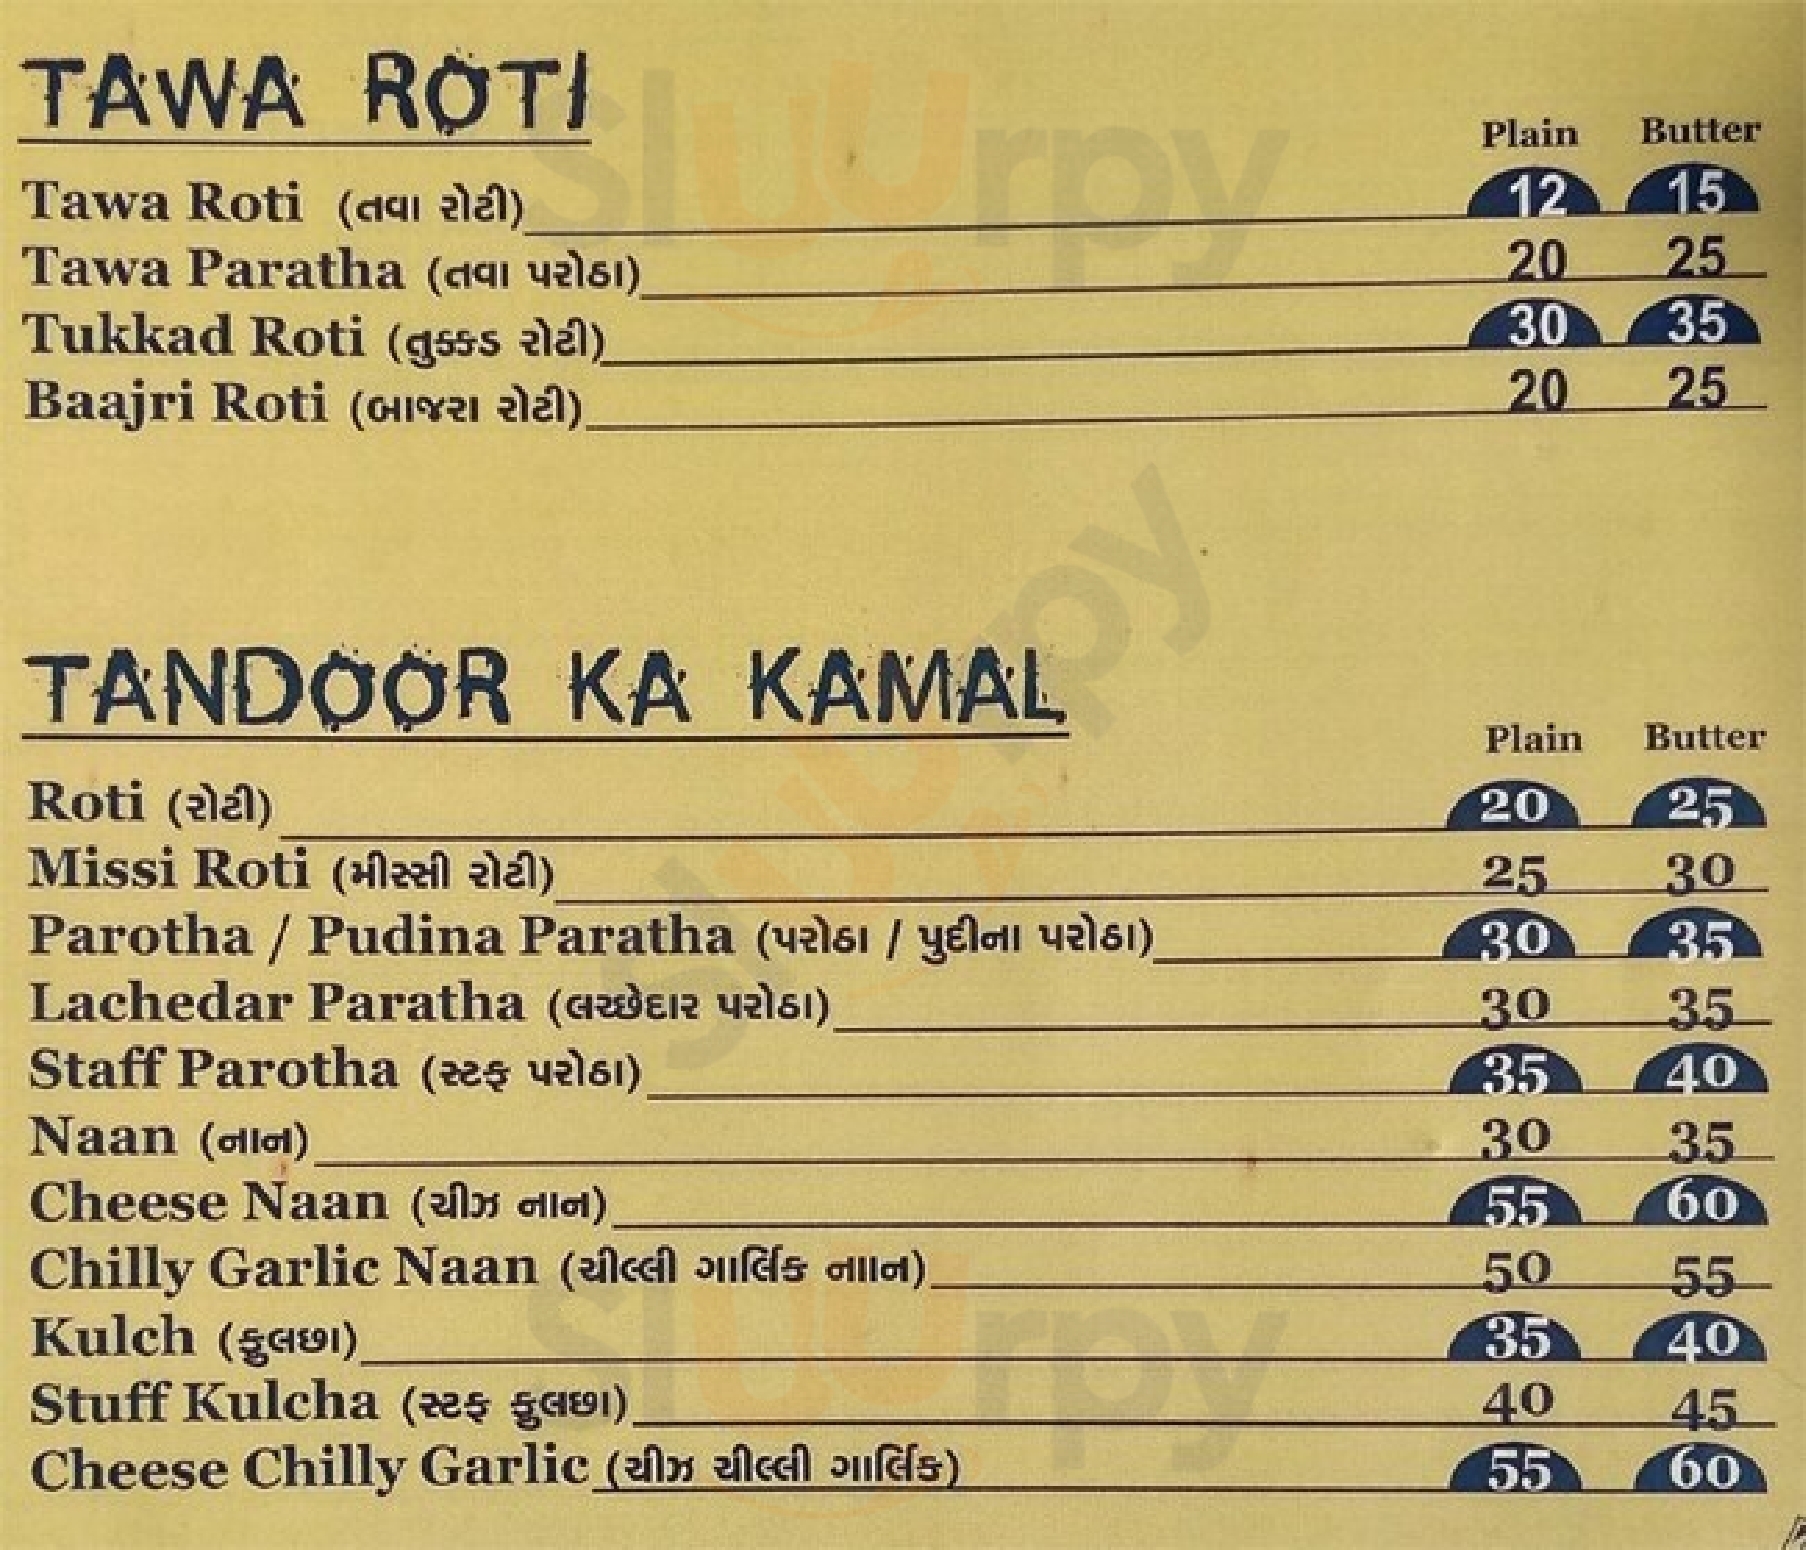 TAWA ROTI
Plain Butter
Tawa Roti (તવા રોટી) 12 15
Tawa Paratha (તવા પરોઠા) 20 25
Tukkad Roti (તુક્કડ રોટી) 30 35
Baajri Roti (બાજરા રોટી) 20 25
TANDOOR KA KAMAL
Plain Butter
Roti (રોટી) 20 25
Missi Roti (મીસ્સી રોટી) 25 30
Parotha / Pudina Paratha (પરોઠા / પુદીના પરોઠા) 30 35
Lachedar Paratha (લચ્છેદાર પરોઠા) 30 35
Staff Parotha (સ્ટફ પરોઠા) 35 40
Naan (નાન) 30 35
Cheese Naan (ચીઝ નાન) 55 60
Chilly Garlic Naan (ચીલ્લી ગાર્લિક નાાન) 50 55
Kulch (કુલછા) 35 40
Stuff Kulcha (સ્ટફ કુલછા) 40 45
Cheese Chilly Garlic (ચીઝ ચીલ્લી ગાર્લિક) 55 60
Sluurpy
Sluurpy
Sluurpy